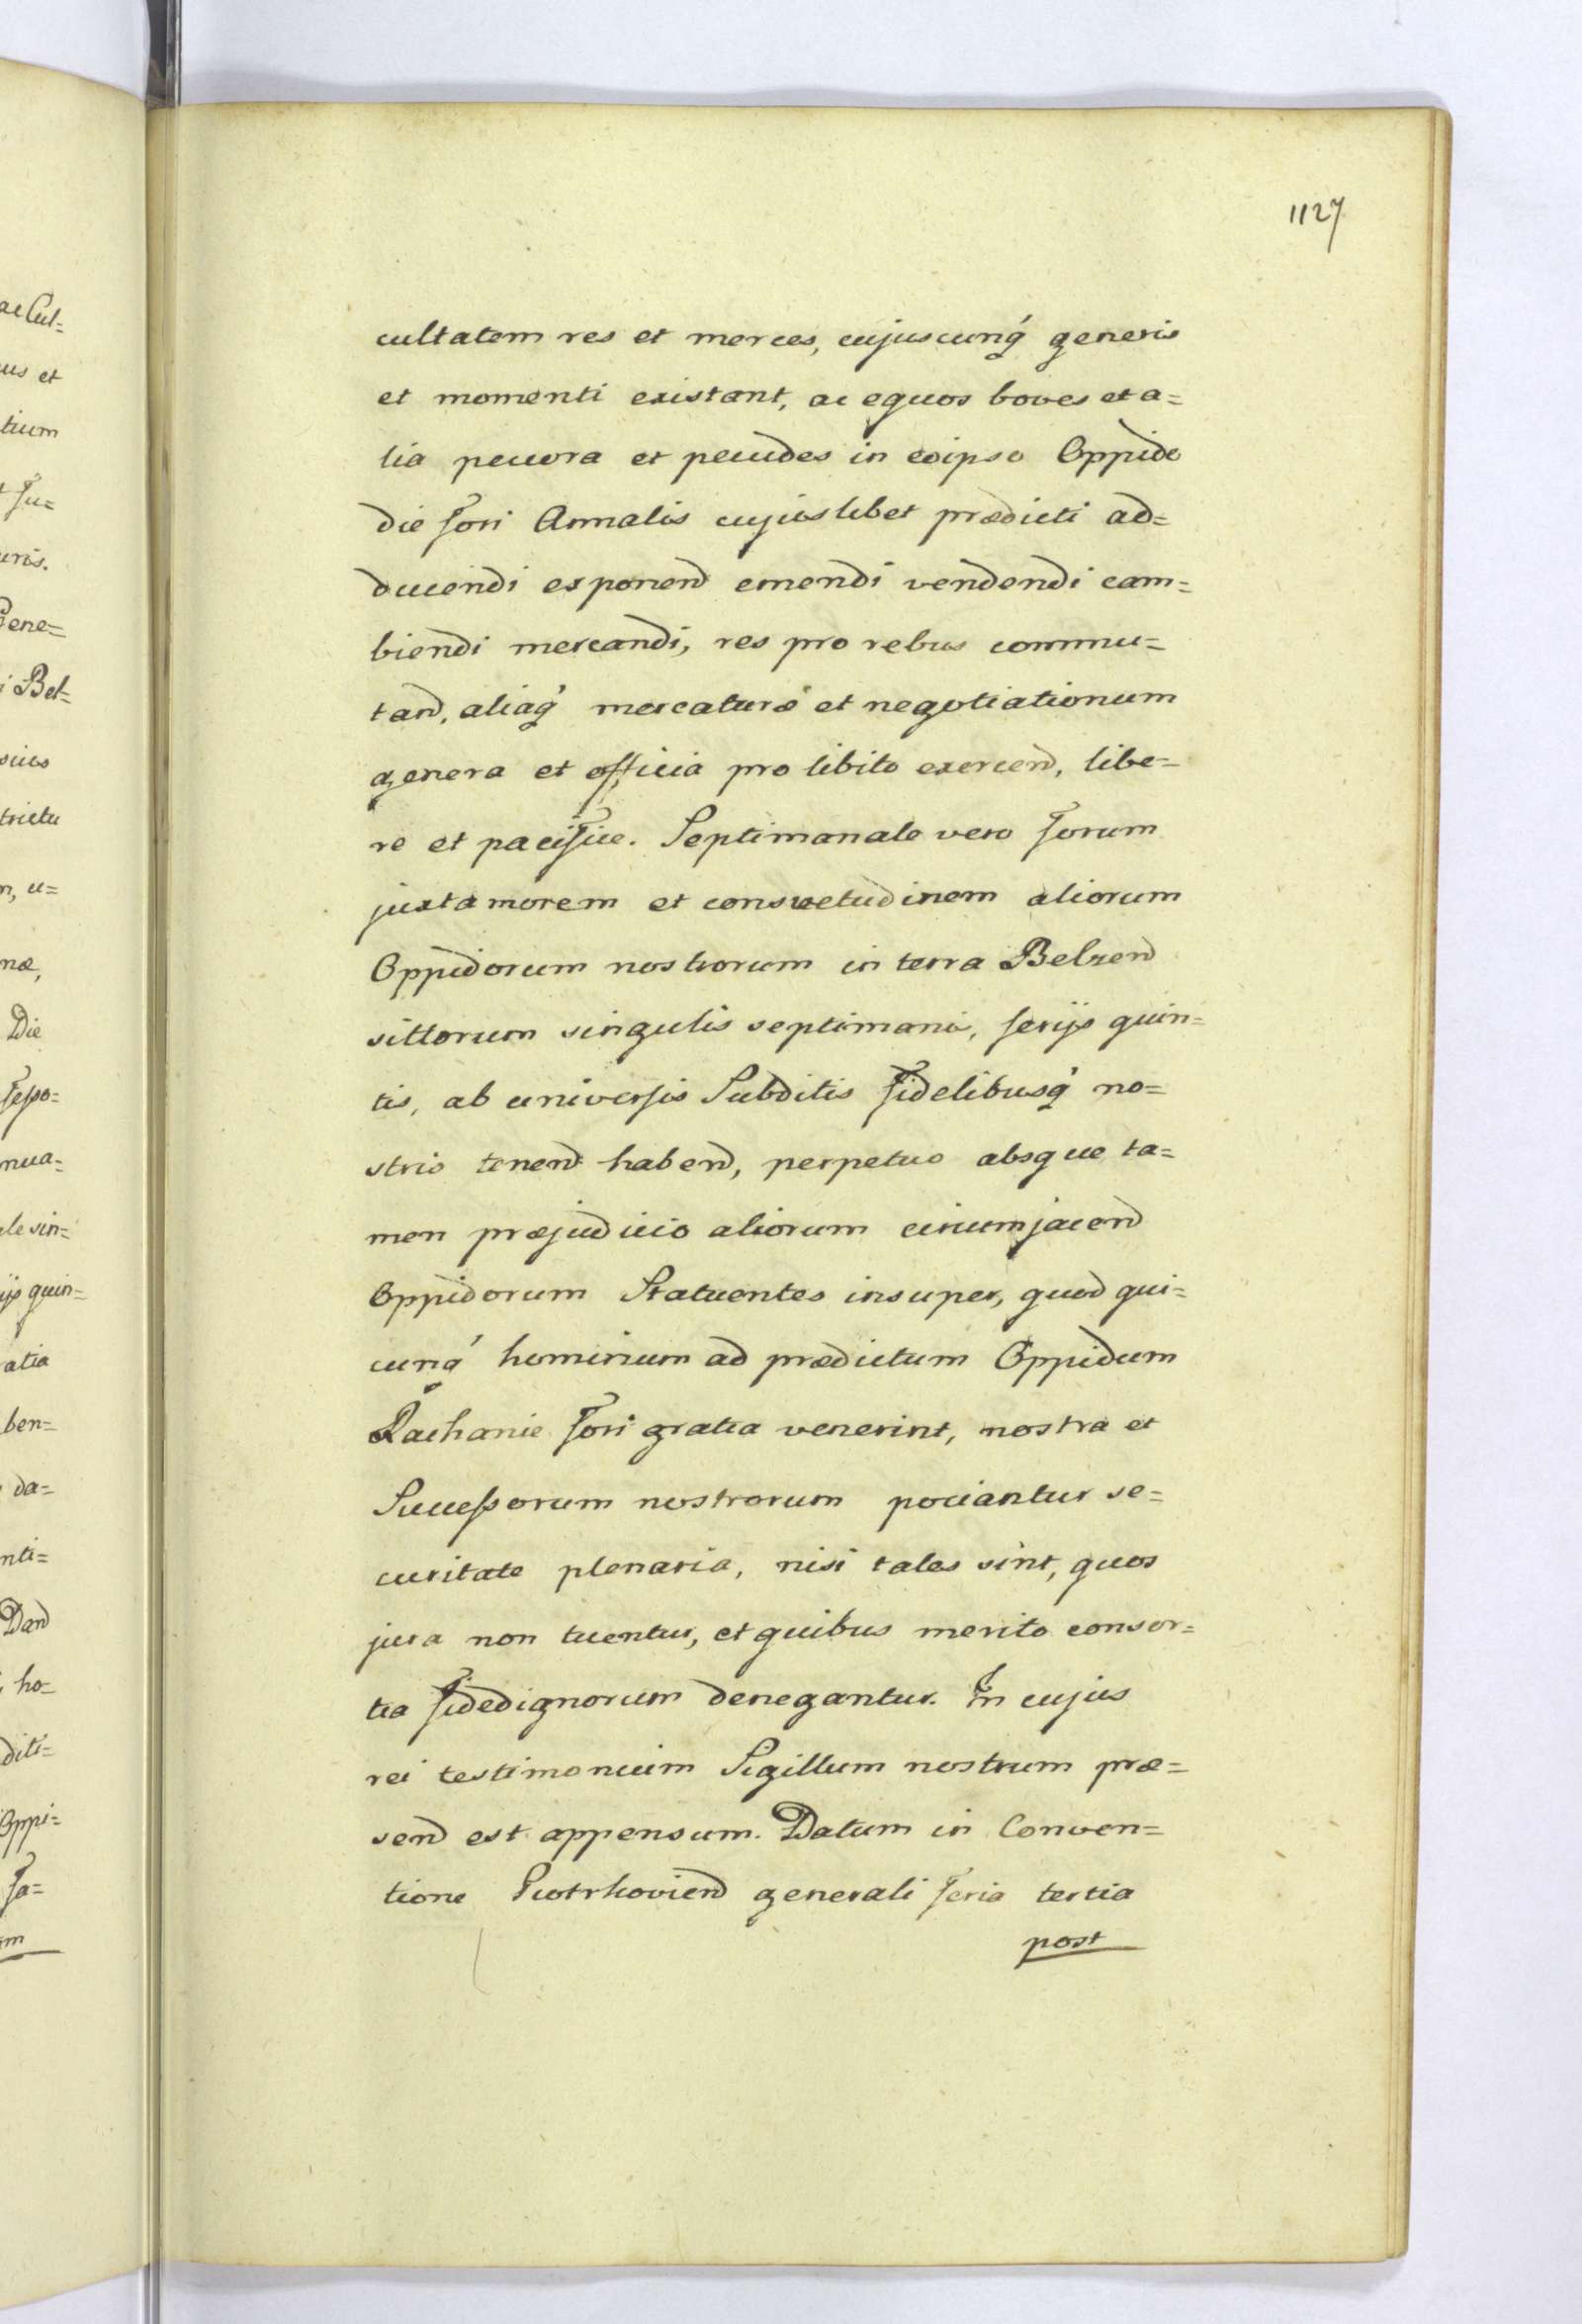 1127
cultatem res et merces, cujuscunq́ generis
et momenti existant, ac equos boves et a=
lia pecora et pecudes in eoipso Oppido
die fori Annalis cujuslibet prædicti ad=
ducendi exponend emendi vendendi cam=
biendi mercandi, res pro rebus commu=
tand, aliaq́ mercaturæ et negotiationum
genera et officia pro libito exercend, libe=
re et pacifice. Septimanale vero forum
juxta morem et consvetudinem aliorum
Oppidorum nostrorum in terra Belzend
sittorum singulis septimanis, ferijs quin=
tis, ab universis Subditis fidelibusq́ no=
stris tenend habend, perpetuo absque ta=
men præjudicio aliorum circumjacend
Oppidorum Statuentes insuper, quod qui=
cunq́ hominum ad prædictum Oppidum
Rachanie fori gratia venerint, nostra et
Successorum nostrorum pociantur se=
curitate plenaria, nisi tales sint, quos
jura non tuentur, et quibus merito consor=
tia fidedignorum denegantur. In cujus
rei testimonium Sigillum nostrum præ=
send est appensum. Datum in Conven=
tione Piotrkoviend generali feria tertia
post
ac Cul=
us et
tium
uris.
i Bel=
trictu
næ,
Die
nua=
le sin=
ijs quin=
atia
ben=
da=
nti=
Dand
ho=
diti=
Oppi=
fa=